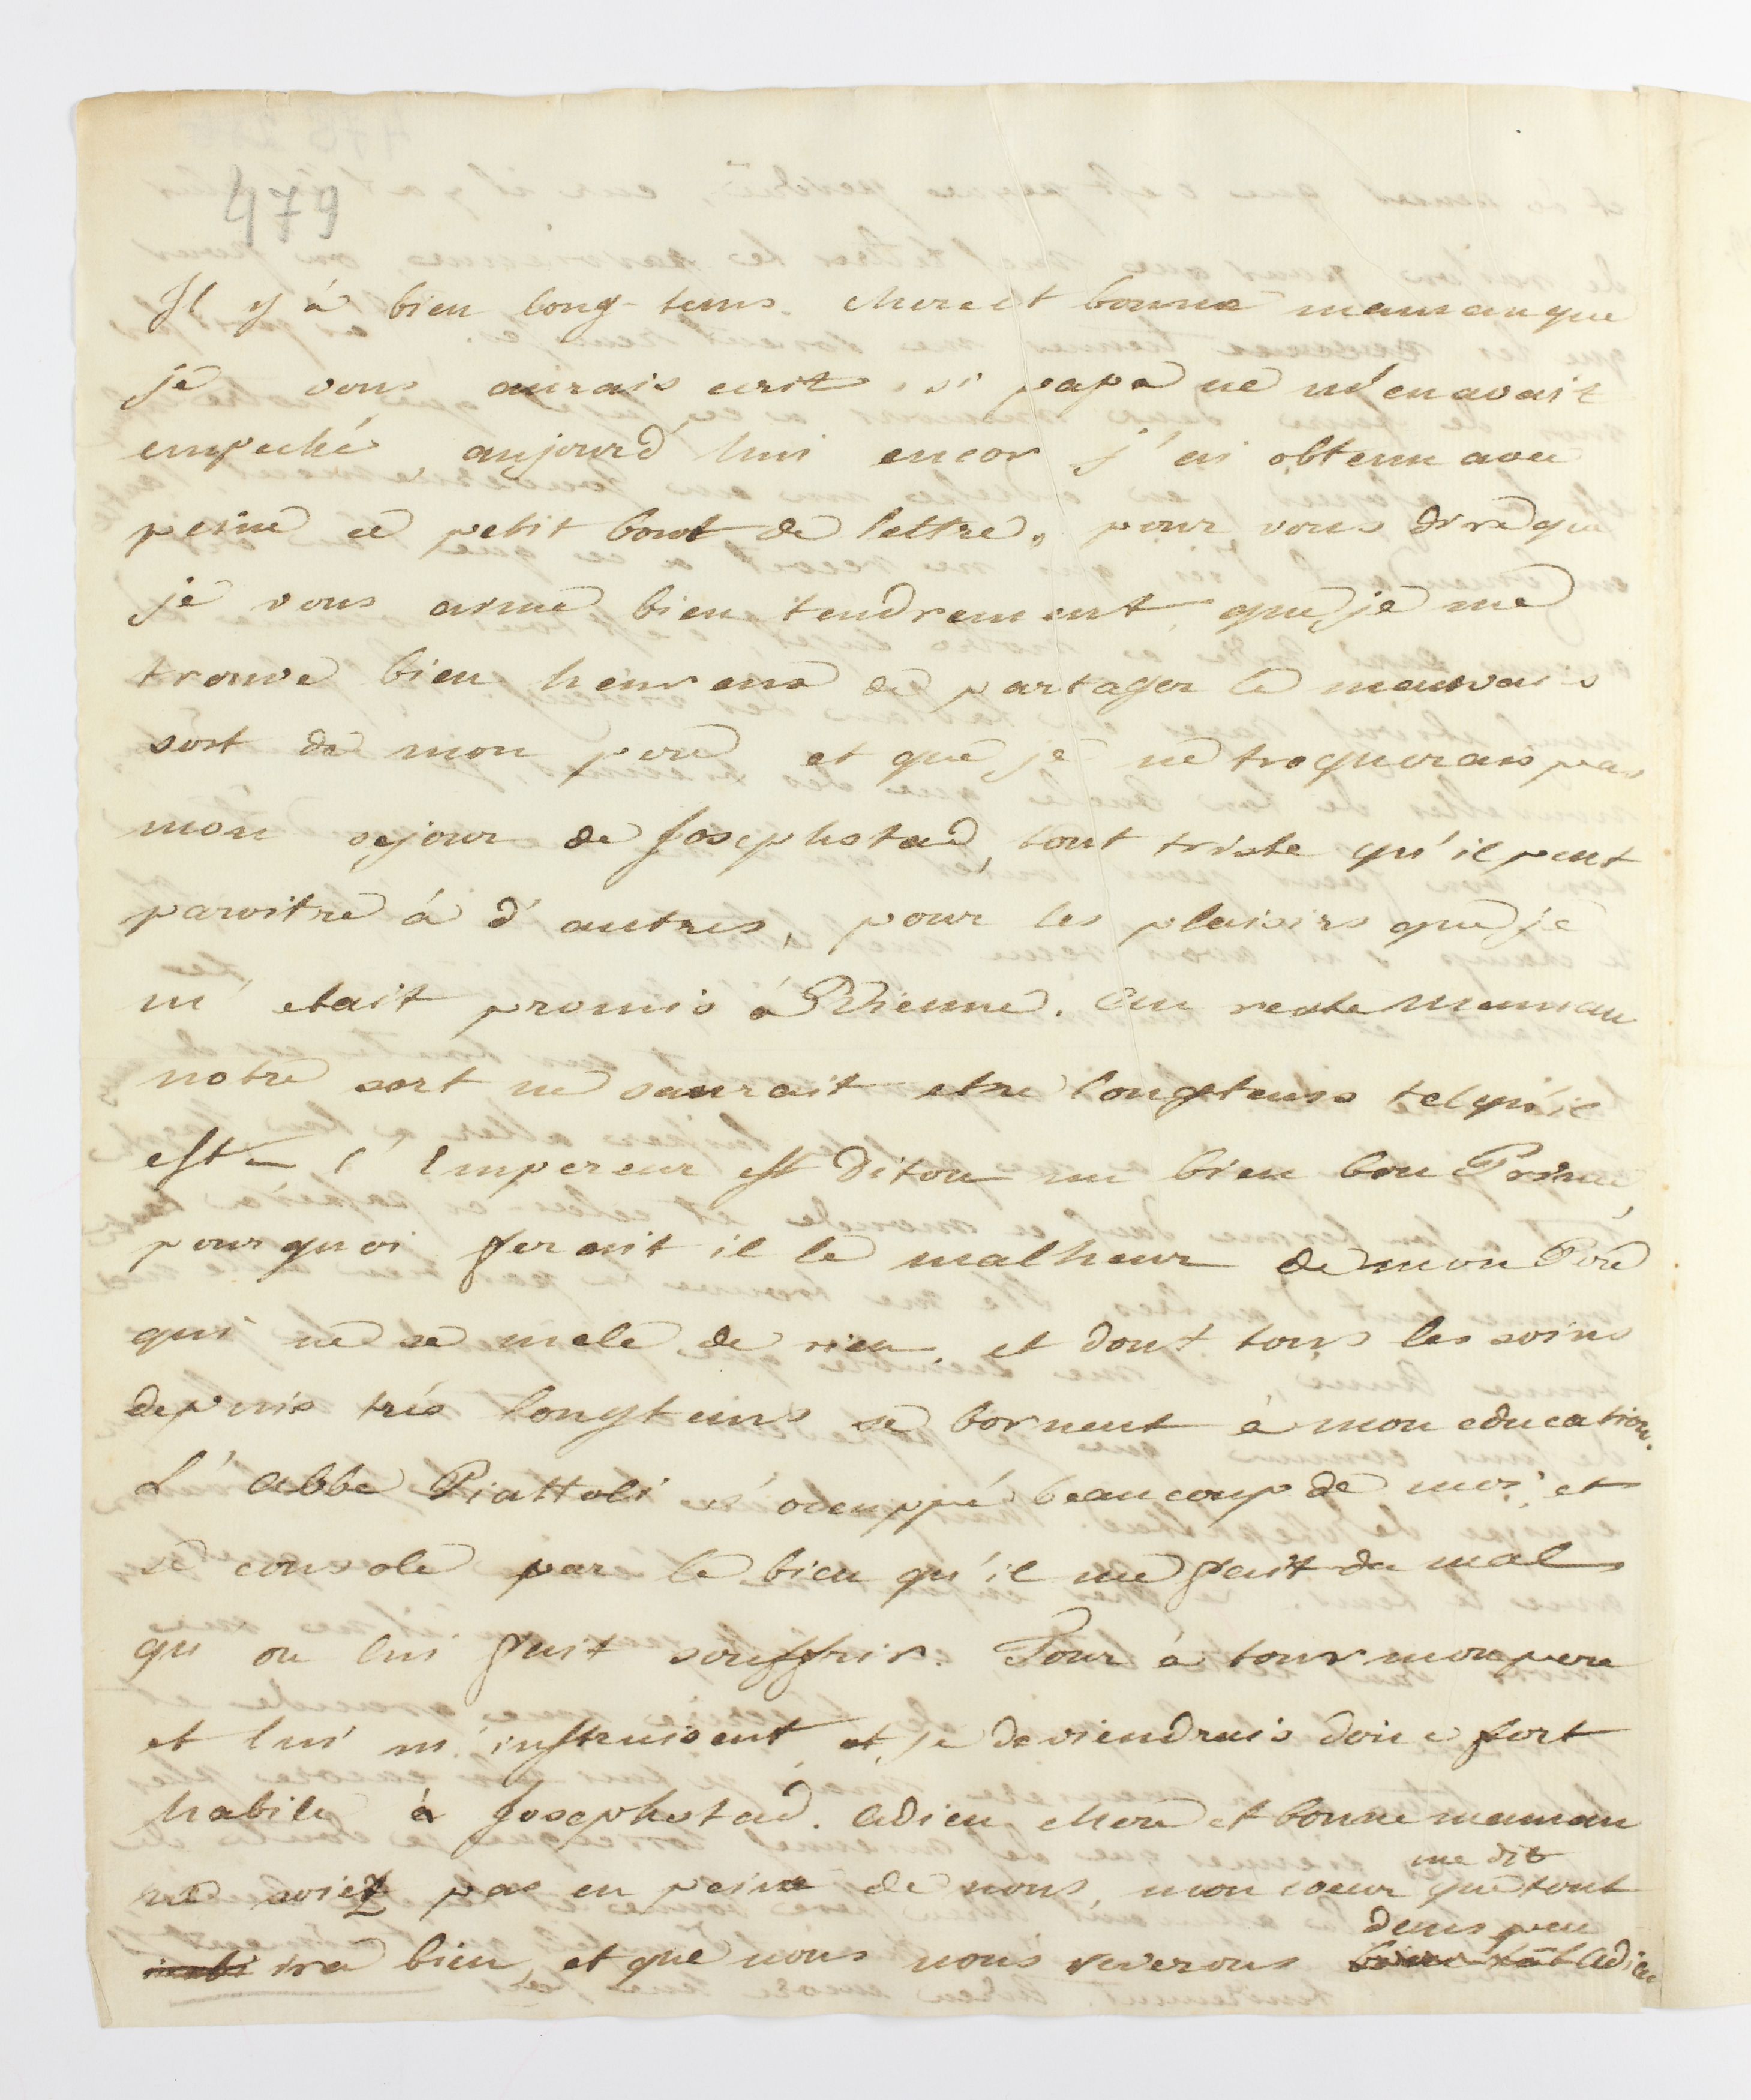 479
Il y à bien long-tems chere et bonne maman que
je vous aurais ecrit, si papa ne m'en avait
empeché aujourd'hui encor j'ai obtenu avec
peine ce petit bout de lettre, pour vous dire que
je vous aime bien tendrement que je me
trouve bien heureux de partager le mauvais
sort de mon pere et que je ne troquerais pas
mon sejour de Josephstad, tout triste qu'il peut
paroitre à d'autres, pour les plaisirs que je
m'etait promis à Vienne. Au reste Maman
notre sort ne saurait etre longtems tel qu'il
est l'Empereur est dit on un bien bon Prince,
pourquoi ferait il le malheur de mon Pere
qui ne se mele de rien, et dont tous les soins
depuis très longtems se bornent à mon education.
L'abbe Piattoli s'occuppe beaucoup de moi, et
se console par le bien qu'il me fait du mal
qu'on lui fait souffrir. Tour à tour mon pere
et lui m'instruisent et je deviendrais donc fort
habile à Josephstad. Adieu chere et bonne maman
ne soiez pas en peine de nous, mon coeur me dit que tout
ira bien et que nous nous reverons dans peu Adieu